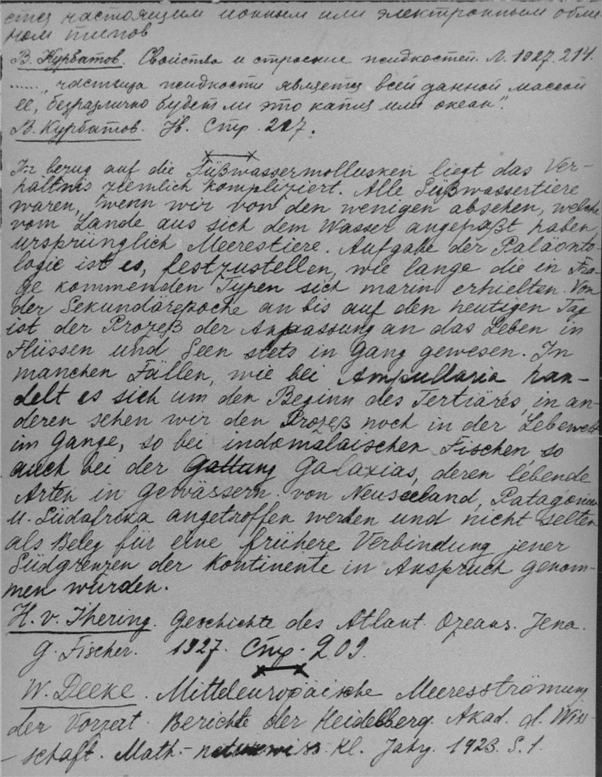 стец настоящим ионным или электронным обме-
ном типов
В. Курбатов. Свойства и строение жидкостей. Л. 1927. 214.
...... „частица жидкости является всей данной массой
ее, безразлично будет ли это капля или океан".
В. Курбатов. Н. Стр. 217.
In bezug auf die Süßwassermollusken liegt das Ver-
hältnis ziemlich kompliziert. Alle Süßwassertiere
waren, wenn wir von den wenigen absehen, welche
vom Lande aus sich dem Wasser angepaßt haben,
ursprünglich Meerestiere. Aufgabe der Paläonto-
logie ist es, festzustellen, wie lange die in Fra-
ge kommenden Typen sich marin erhielten. Von
der Sekundärepoche an bis auf den heutigen Tag
ist der Prozeß der Anpassung an das Leben in
Flüssen und Seen stets in Gang gewesen. In
manchen Fällen, wie bei Ampullaria han-
delt es sich um den Beginn des Tertiäres, in an-
deren sehen wir den Prozeß noch in der Lebewelt
im Gange, so bei indomalaischen Fischen so
auch bei der Gattung Galaxias, deren lebende
Arten in Gewässern von Neuseeland, Patagonien
u. Südafrika angetroffen werden und nicht selten
als Beleg für eine frühere Verbindung jener
Südgrenzen der Kontinente in Anspruch genom-
men wurden.
H. v. Ihering. Geschichte des Atlant. Ozeans. Jena.
G. Fischer. 1927. Стр. 209.
W. Deeke. Mitteleuropäische Meeresströmung
der Vorzeit. Berichte der Heidelberg. Akad. d. Wiss-
schaft. Math.- naturwiss. Kl. Jahg. 1923. S. 1.